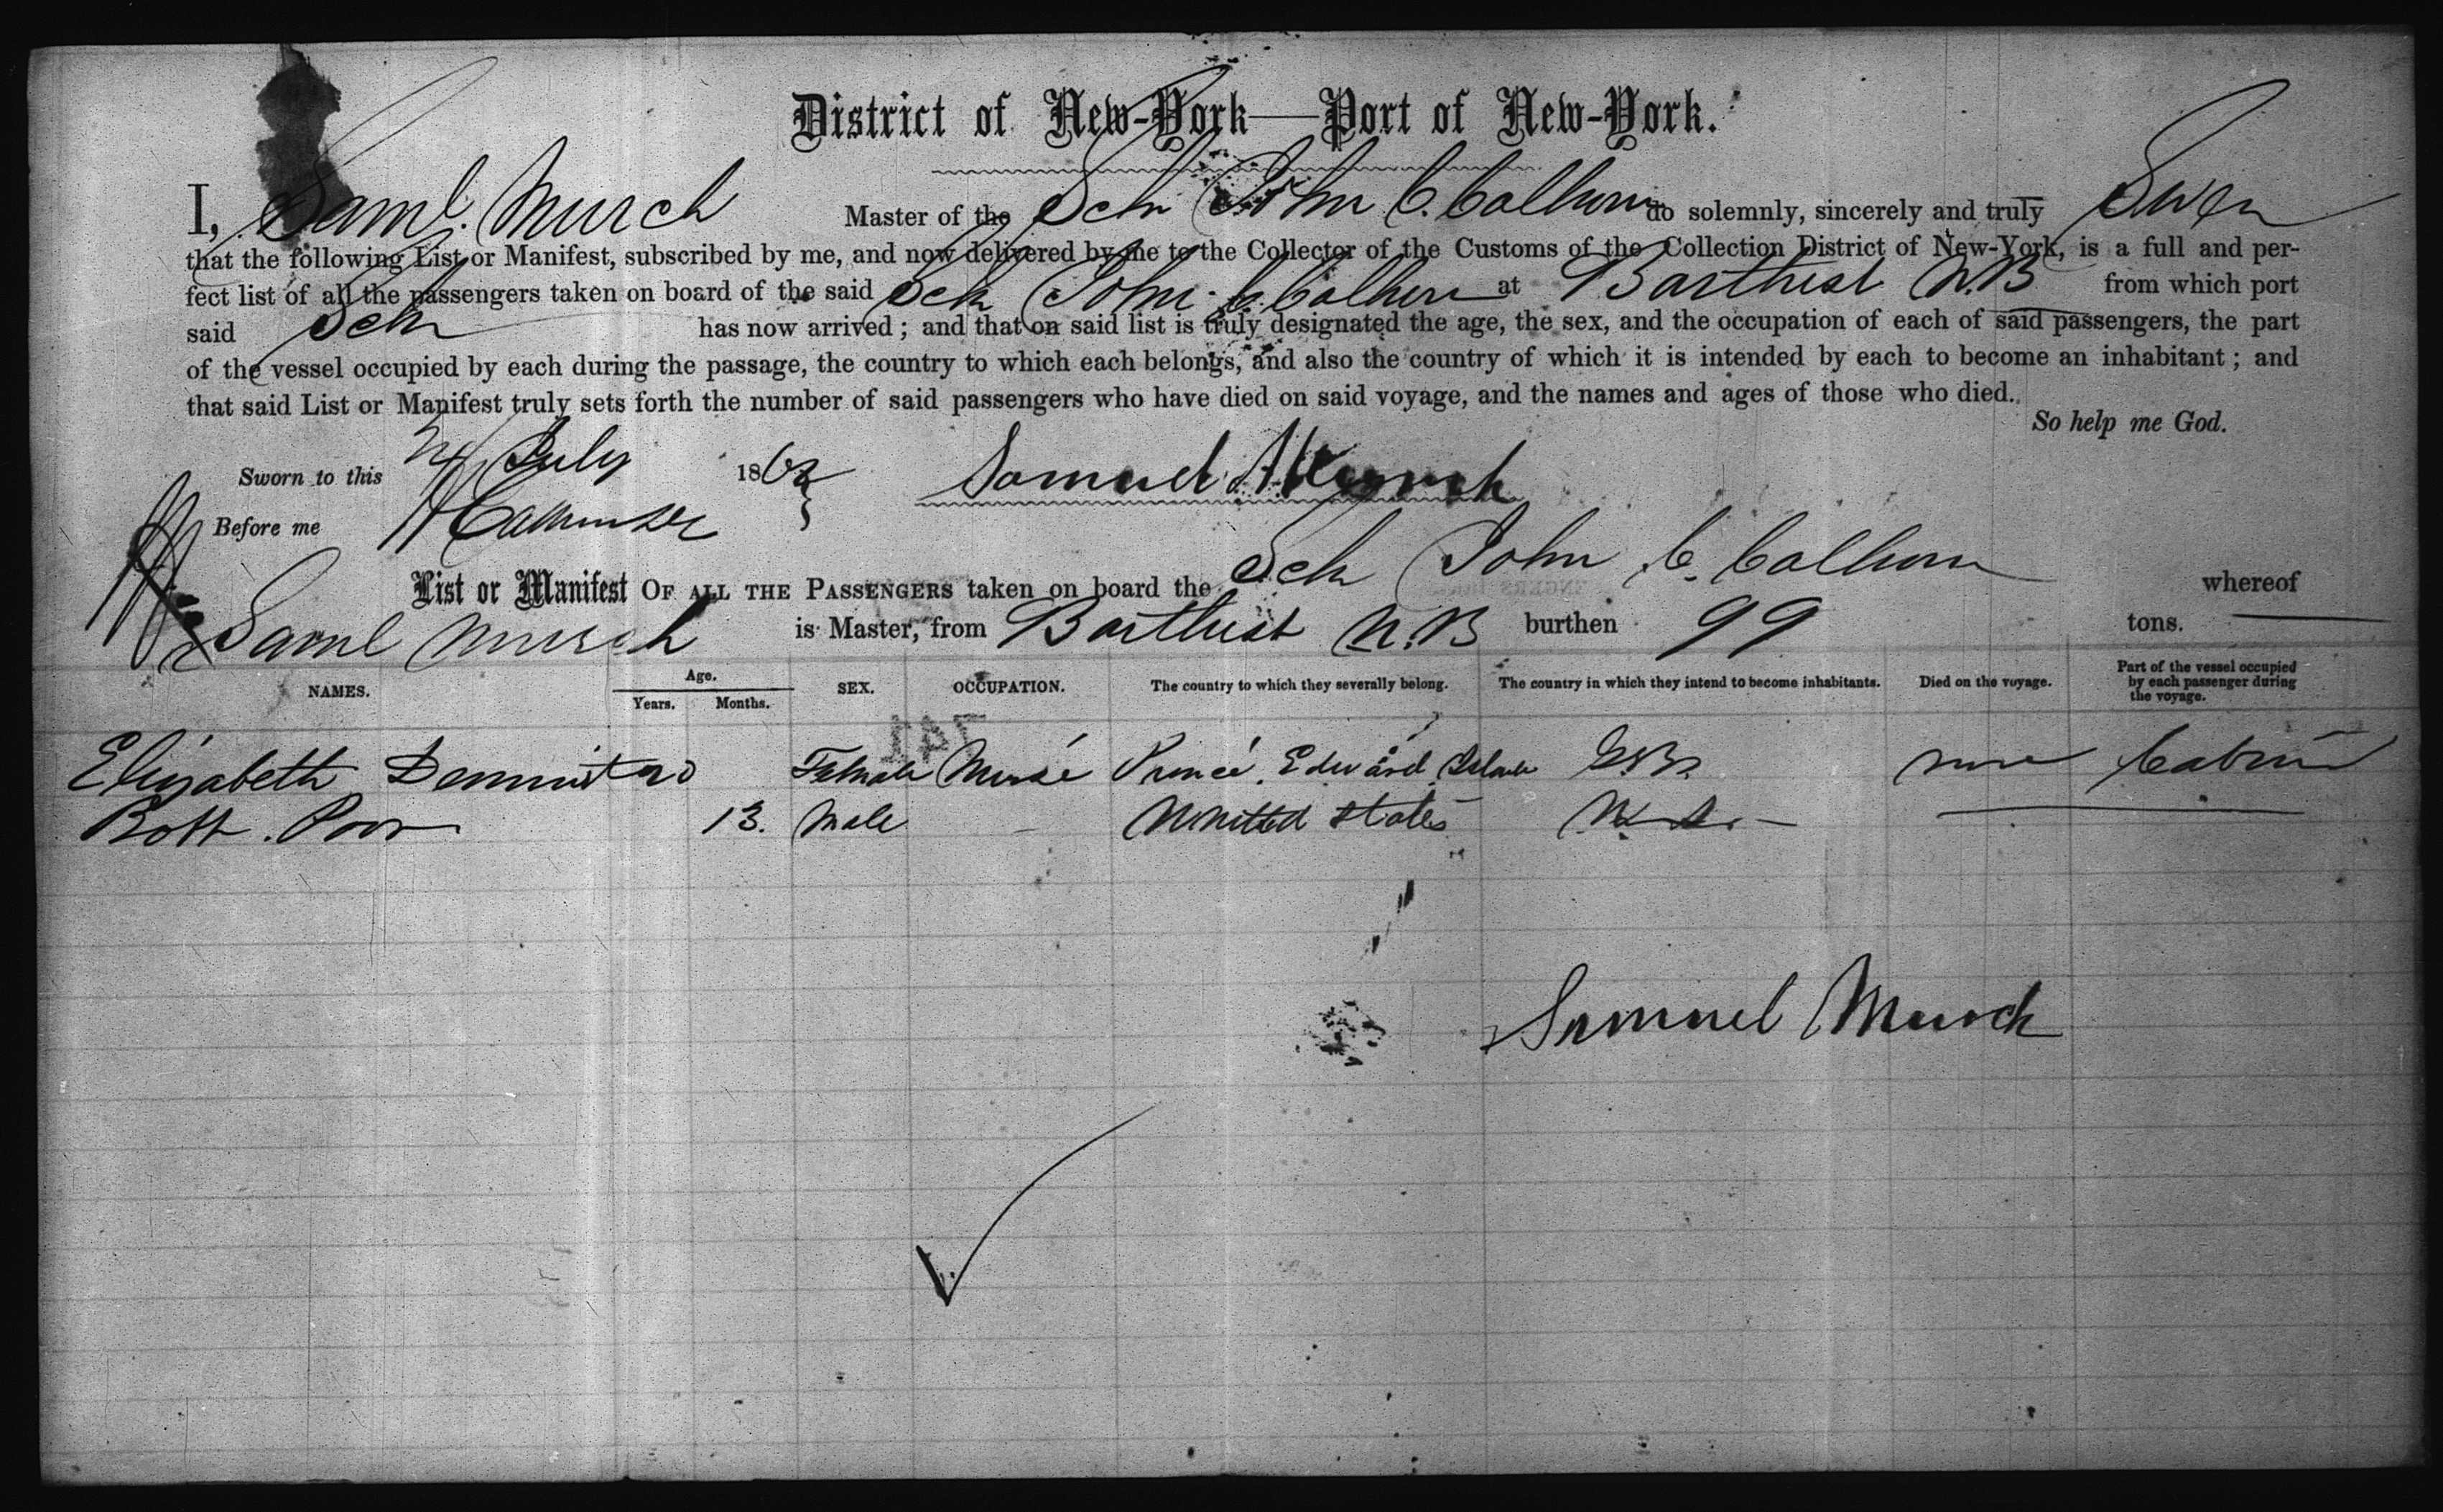 District of New-York—Port of New-York.
I, Saml. Murch Master of the Sch John C. Calhoun do solemnly, sincerely and truly Swear
that the following List or Manifest, subscribed by me, and now delivered by me to the Collector of the Customs of the Collection District of New-York, is a full and per-
fect list of all the passengers taken on board of the said Sch John C. Calhoun at Barthust N.B from which port
said Sch has now arrived; and that on said list is truly designated the age, the sex, and the occupation of each of said passengers, the part
of the vessel occupied by each during the passage, the country to which each belongs, and also the country of which it is intended by each to become an inhabitant; and
that said List or Manifest truly sets forth the number of said passengers who have died on said voyage, and the names and ages of those who died.
So help me God.
Sworn to this July 186 Samuel Murch
Before me
List or Manifest OF ALL THE PASSENGERS taken on board the Sch John C. Calhoun whereof
Saml Murch is Master, from Barthust N.B burthen 99 tons.
NAMES. Age. Years. Months. SEX. OCCUPATION. The country to which they severally belong. The country in which they intend to become inhabitants. Died on the voyage. Part of the vessel occupied by each passenger during the voyage.
741
Elizabeth Female Nurse Prince Edward Island none Cabin
Robt. Poor 13. Male — United States U.S. —
Samuel Murch